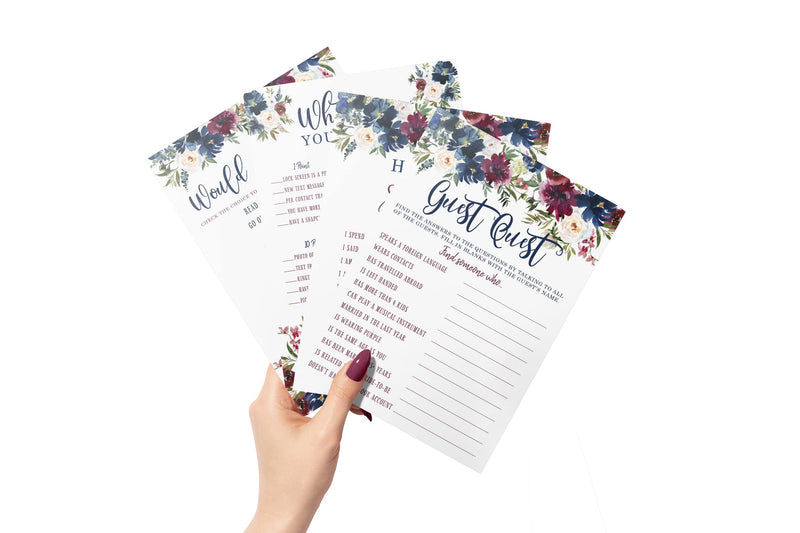 Would
CHECK THE CHOICE TO
READ
GO O
Wh
YOU
1 Point
LOCK SCREEN IS A P
NEW TEXT MESSAGE
PER CONTACT
YOU HAVE MORE
HAVE A SHAP
10 P
PHOTO OF
TEXT
RINGT
HAS
PIC
H
I SPEND
I SAID
I
Guest Quest
FIND THE ANSWERS TO THE QUESTIONS BY TALKING TO ALL
OF THE GUESTS. FILL IN BLANKS WITH THE GUEST'S NAME.
Find someone who...
SPEAKS A FOREIGN LANGUAGE
WEARS CONTACTS
HAS TRAVELLED ABROAD
IS LEFT HANDED
HAS MORE THAN 4 KIDS
CAN PLAY A MUSICAL INSTRUMENT
MARRIED IN THE LAST YEAR
IS WEARING PURPLE
IS THE SAME AGE AS YOU
HAS BEEN MAR YEARS
IS RELATED IDE-TO-BE
DOESN'T HA OOK ACCOUNT